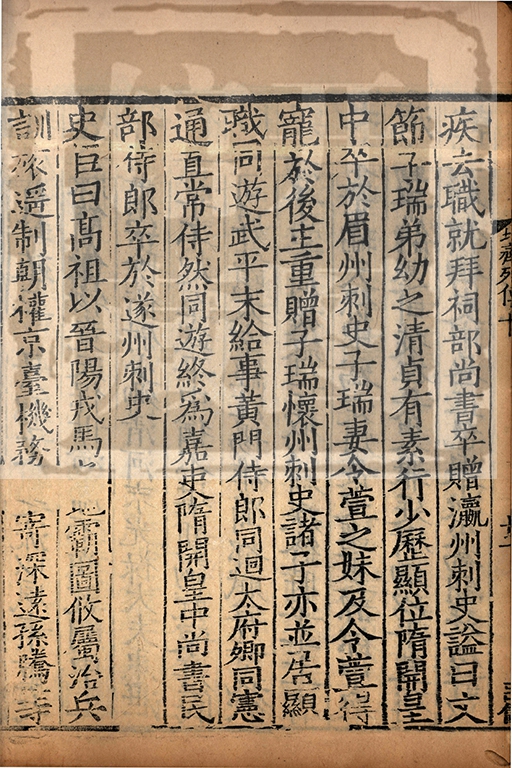 疾去職就拜祠部尚書卒贈瀛州刺史謚曰文
節子瑞弟幼之清貞有素行少歷顯位隋開皇
中卒於眉州刺史子瑞妻令萱之妹及令萱得
寵於後主重贈子瑞懷州刺史諸子亦並居顯
職同遊武平末給事黃門侍郎同迴太府卿同憲
通直常侍然同遊終為嘉吏隋開皇中尚書民
部侍郎卒於遂州刺史
史臣曰高祖以晉陽戎馬之地霸圖攸屬治兵
訓旅遥制朝權京臺機務寄深遠孫騰等